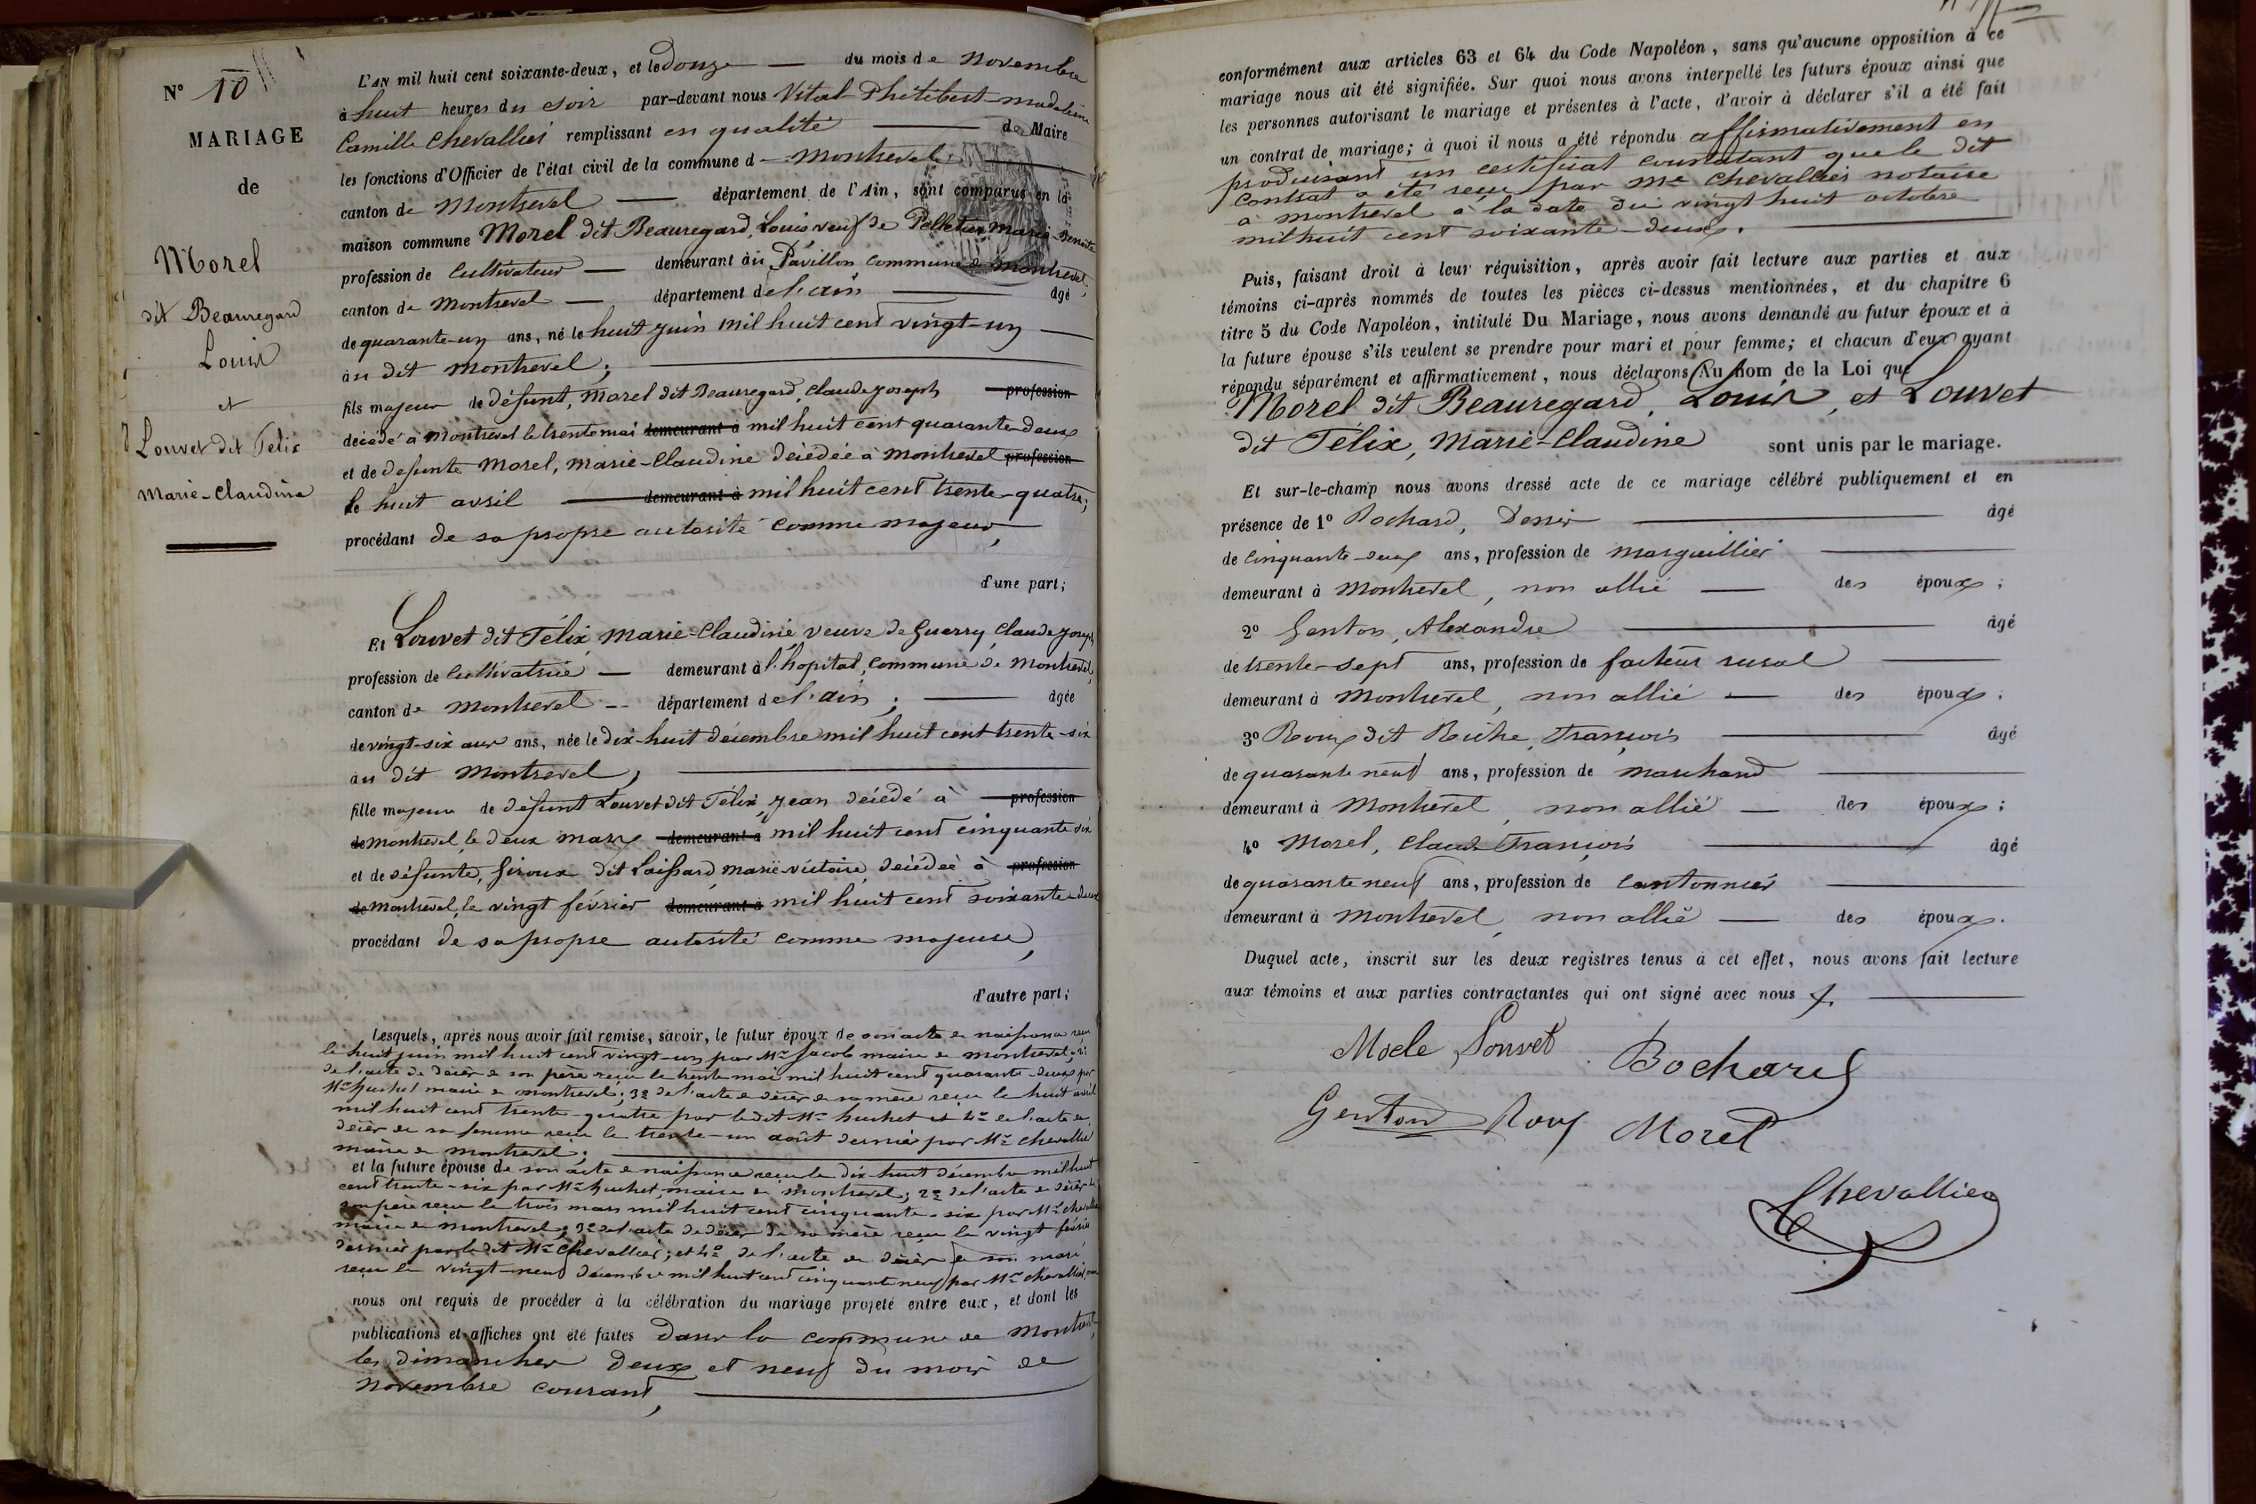 N° 10
MARIAGE
de
Morel
dit Beauregard
Louis
et
Louvet dit Félix
Marie-Claudine
L'AN mil huit cent soixante-deux, et le douze du mois de novembre
à huit heures du soir par-devant nous Vital-Philibert-Madeleine
Camille Chevallier remplissant en qualité de Maire
les fonctions d'Officier de l'état civil de la commune d montrevel,
canton de montrevel département de l'Ain, sont comparus en la
maison commune Morel dit Beauregard, Louis veuf de Pelletier Marie-Benoite
profession de cultivateur demeurant au Pavillon commune de montrevel,
canton de montrevel département de l'ain âgé
de quarante-un ans, né le huit juin mil huit cent vingt-un
au dit montrevel;
fils majeur de défunt, Morel dit Beauregard, Claude Joseph profession
décédé à montrevel le trente mai demeurant à mil huit cent quarante-deux
et de defunte Morel, Marie-Claudine décédée à montrevel profession
le huit avril demeurant à mil huit cent trente-quatre;
procédant de sa propre autorité comme majeur,
d'une part;
Et Louvet dit Félix, Marie-Claudine, veuve de Guerry, Claude Joseph
profession de cultivatrice demeurant à l'hopital, commune de montrevel,
canton de montrevel département de l'ain; âgée
de vingt-six ans ans, née le dix-huit décembre mil huit cent trente-six
au dit montrevel,
fille majeure de défunt Louvet dit Félix, Jean décédé à profession
de montrevel, le deux mars demeurant à mil huit cent cinquante six
et de défunte, Giroux dit Loissard, Marie-Victoire, décédée à profession
de montrevel, le vingt février demeurant à mil huit cent soixante-deux
procédant de sa propre autorité comme majeure,
d'autre part;
Lesquels, après nous avoir fait remise, savoir, le futur époux de son acte de naissance reçu
le huit juin mil huit cent vingt-un par Mr Jacob maire de montrevel; 2°
de l'acte de décès de son père reçu le trente mai mil huit cent quarante-deux par
Mr huchet maire de montrevel; 3° de l'acte de décès de sa mère reçu le huit avril
mil huit cent trente-quatre par le dit Mr huchet et 4° de l'acte de
décès de sa femme reçu le trente-un août dernier par Mr Chevallier
maire de montrevel;
et la future épouse de son acte de naissance reçu le dix-huit décembre mil huit
cent trente-six par Mr huchet, maire de montrevel; 2° de l'acte de décès de
son père reçu le trois mars mil huit cent cinquante-six par Mr chevallier
maire de montrevel; 3° de l'acte de décès de sa mère reçu le vingt février
dernier par le dit Mr Chevallier; et 4° de l'acte de décès de son mari
reçu le vingt-neuf décembre mil huit cent cinquante neuf par Mr Chevallier,
nous ont requis de procéder à la célébration du mariage projeté entre eux, et dont les
publications et affiches ont été faites dans la commune de montrevel,
les dimanches deux et neuf du mois de
novembre courant,
conformément aux articles 63 et 64 du Code Napoléon, sans qu'aucune opposition à ce
mariage nous ait été signifiée. Sur quoi nous avons interpellé les futurs époux ainsi que
les personnes autorisant le mariage et présentes à l'acte, d'avoir à déclarer s'il a été fait
un contrat de mariage; à quoi il nous a été répondu affirmativement en
produisant un certificat constatant que le dit
contrat a été reçu par Me Chevallier notaire
à montrevel à la date du vingt huit octobre
mil huit cent soixante-deux.
Puis, faisant droit à leur réquisition, après avoir fait lecture aux parties et aux
témoins ci-après nommés de toutes les pièces ci-dessus mentionnées, et du chapitre 6
titre 5 du Code Napoléon, intitulé Du Mariage, nous avons demandé au futur époux et à
la future épouse s'ils veulent se prendre pour mari et pour femme; et chacun d'eux ayant
répondu séparément et affirmativement, nous déclarons Au Nom de la Loi que
Morel dit Beauregard, Louis, et Louvet
dit Félix, Marie-Claudine sont unis par le mariage.
Et sur-le-champ nous avons dressé acte de ce mariage célébré publiquement et en
présence de 1° Bochard, Denis âgé
de cinquante-deux ans, profession de marguillier
demeurant à montrevel, non allié des époux;
2° Genton, Alexandre âgé
de trente-sept ans, profession de facteur rural
demeurant à montrevel, non allié des époux;
3° Roux dit Riche, François âgé
de quarante neuf ans, profession de marchand
demeurant à montrevel, non allié des époux;
4° Morel, Claude François âgé
de quarante neuf ans, profession de cantonnier
demeurant à montrevel, non allié des époux.
Duquel acte, inscrit sur les deux registres tenus à cet effet, nous avons fait lecture
aux témoins et aux parties contractantes qui ont signé avec nous
Morle Louvet Bochard
Genton Roux Morel
Chevallier